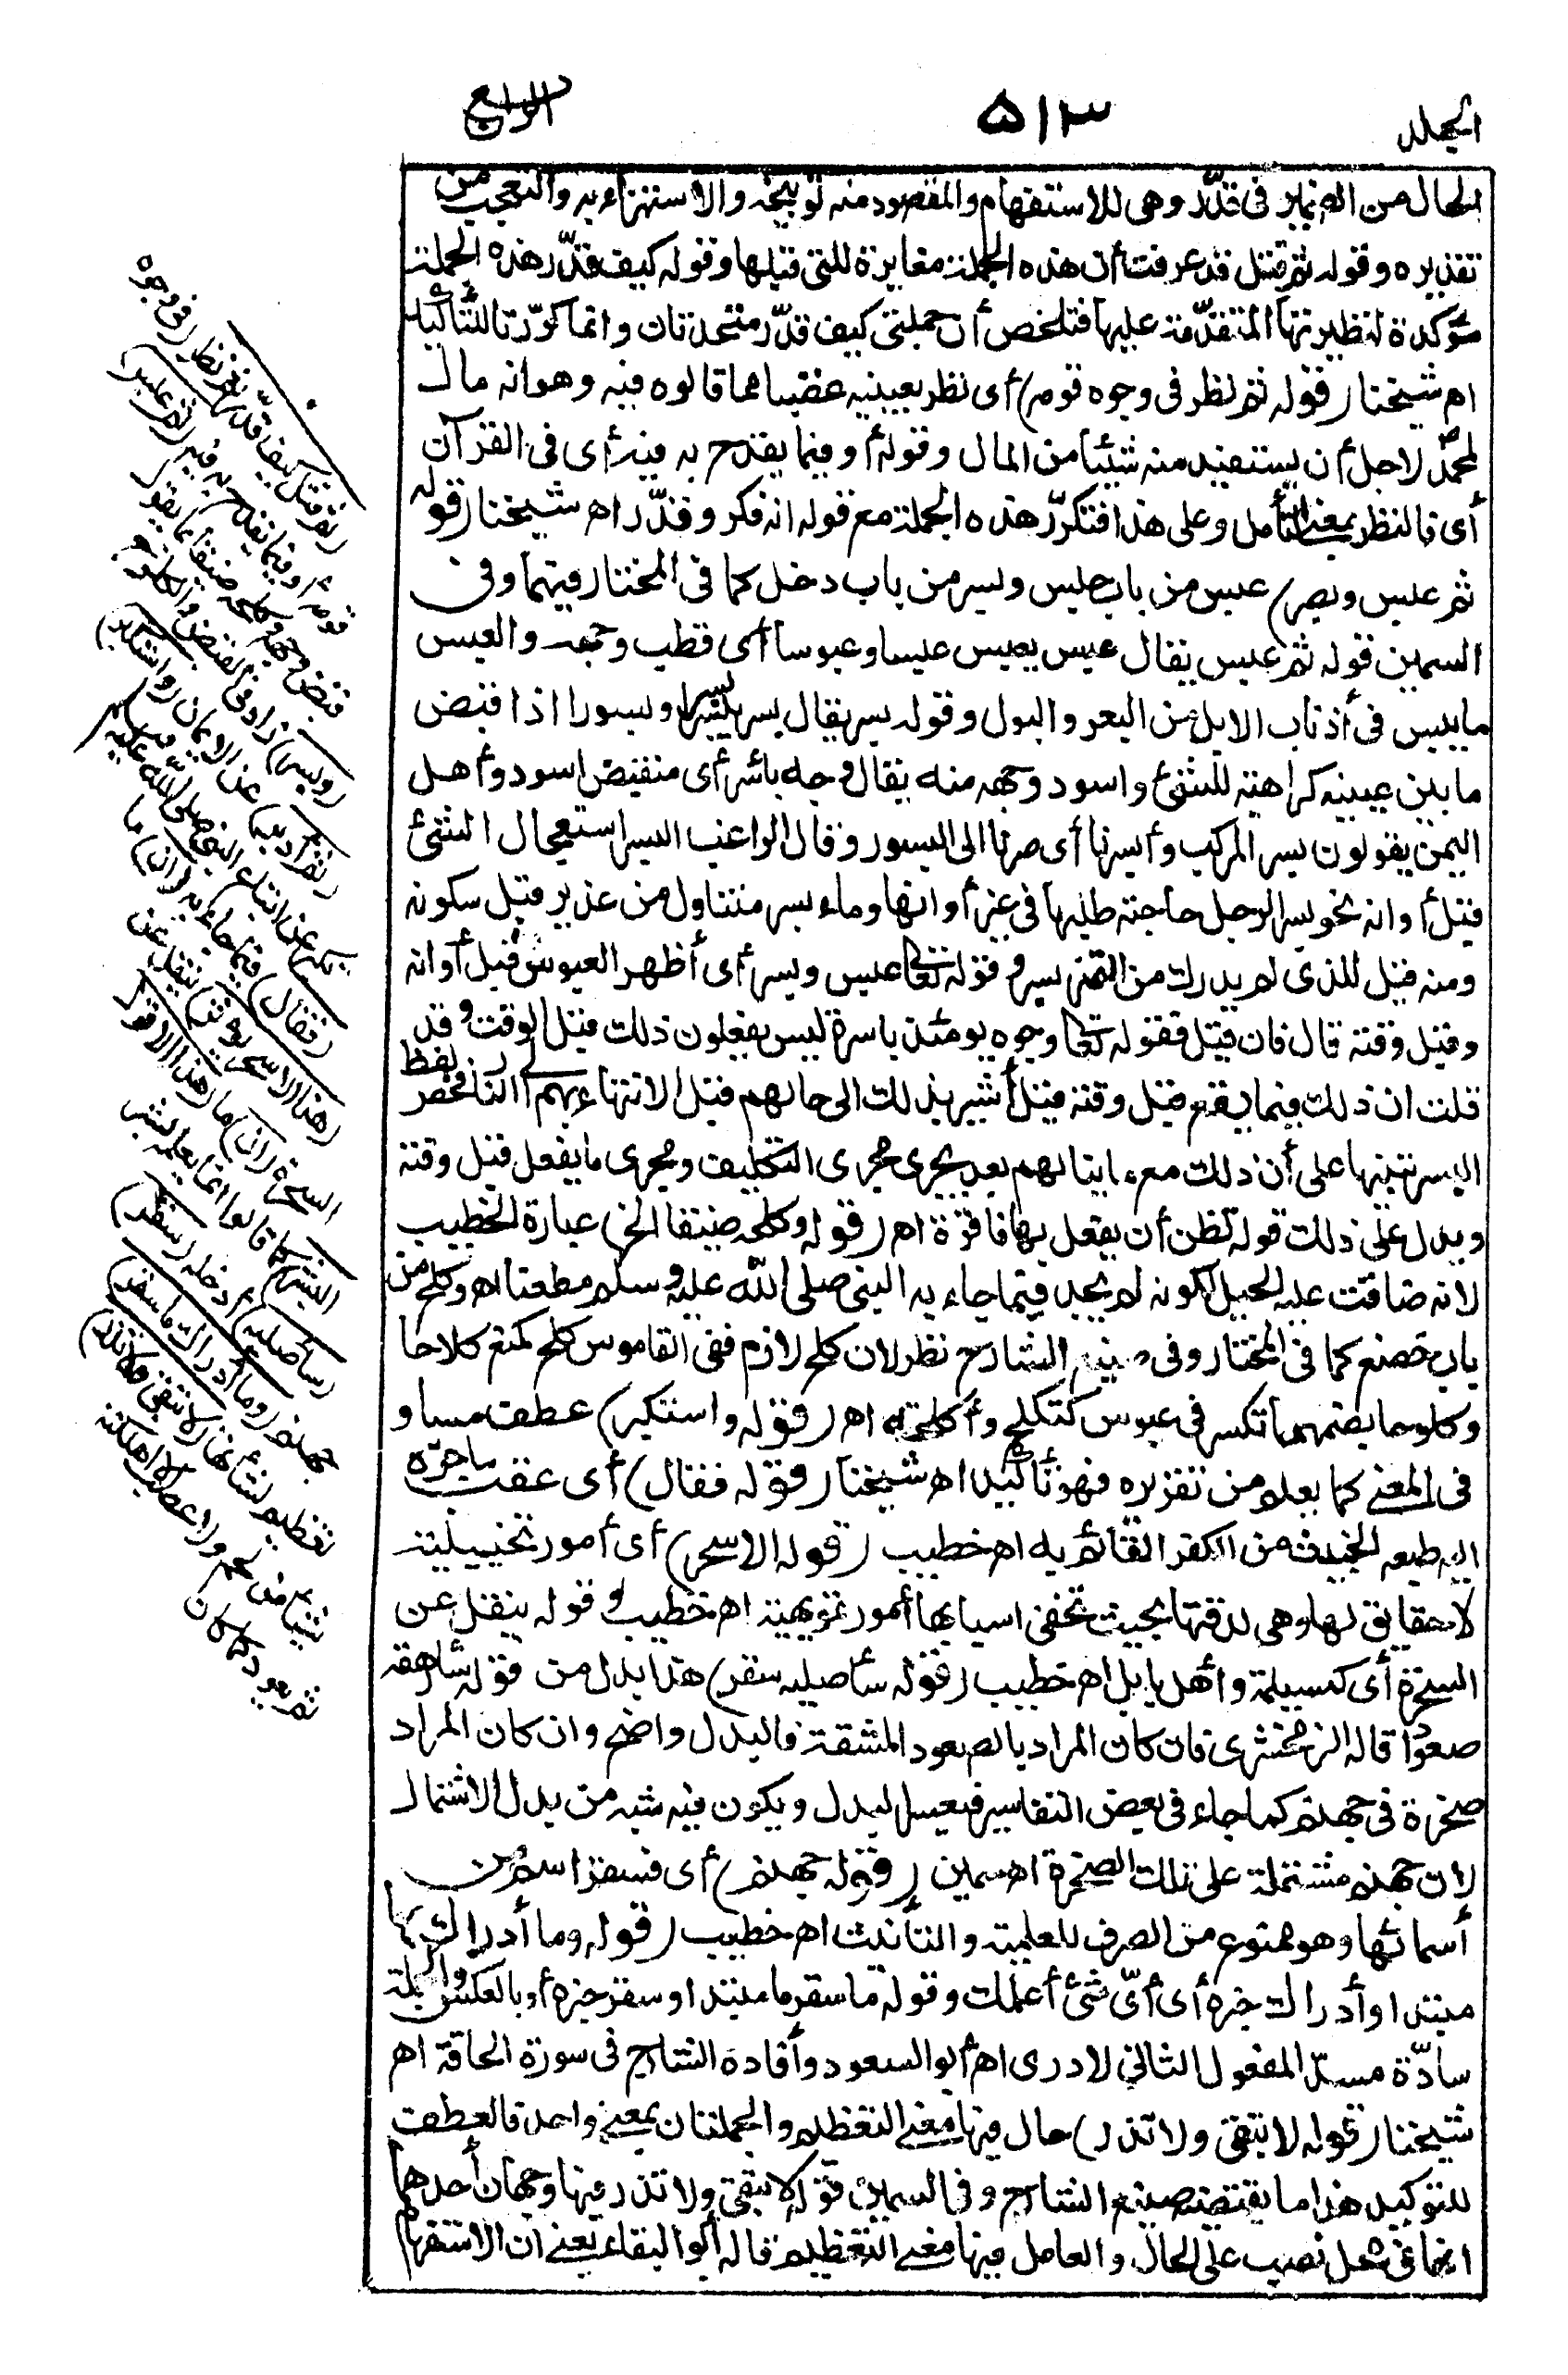 المجلد
٥١٣
الرابع
الحال من الضمير فى قدّر وهى للاستفهام والمقصود منه توبيخه والاستهزاء به والتعجب من
تقديره وقوله ثم قتل قد عرفت أن هذه الجملة مغايرة للتى قبلها وقوله كيف قدّر هذه الجملة
مؤكدة لنظيرتها المتقدّمة عليها فتلخص أن جملتى كيف قدّر متحدتان وانما كرّرتا للتأكيد
اه شيخنا (قوله ثم نظر فى وجوه قومه) أى نظر بعينيه غضبا مما قالوه فيه وهو انه مال
لمحمد لاجل أن يستفيد منه شيئا من المال وقوله أو فيما يقدح به فيه أى فى القرآن
أى فالنظر بمعنى التأمل وعلى هذا فتكرّر هذه الجملة مع قوله انه فكر وقدّر اه شيخنا (قوله
ثم عبس وبسر) عبس من باب جلس وبسر من باب دخل كما فى المختار فيهما وفى
السمين قوله ثم عبس يقال عبس يعبس عبسا وعبوسا أى قطب وجهه والعبس
ما يبس فى أذناب الابل من البعر والبول وقوله بسر يقال بسر يبسر بسرا وبسورا اذا قبض
ما بين عينيه كراهية للشئ واسود وجهه منه يقال وجه باسر أى منقبض اسود وأهل
اليمن يقولون بسر المركب وأبسرنا أى صرنا الى البسور وقال الراغب البسر استعجال الشئ
قبل أوانه نحو بسر الرجل حاجته طلبها فى غير أوانها وماء بسر متناول من غدير قبل سكونه
ومنه قيل للذى لم يدرك من التمر بسر وقوله تعالى عبس وبسر أى أظهر العبوس قبل أوانه
وقبل وقته قال فان قيل فقوله تعالى وجوه يومئذ باسرة ليس يفعلون ذلك قبل الوقت وقد
قلت ان ذلك فيما يقع قبل وقته قيل أشير بذلك الى حالهم قبل الانتهاء بهم الى النار فخص لفظ
البسر تنبيها على أن ذلك مع ما ينالهم بعد يجرى مجرى التكليف ومجرى ما يفعل قبل وقته
ويدل على ذلك قوله تظن أن يفعل بها فاقرة اه (قوله وكلحه ضيقا الخ) عبارة الخطيب
لانه ضاقت عليه الحيل لكونه لم يجد فيما جاء به النبى صلى الله عليه وسلم مطعنا اه وكلح من
باب خضع كما فى المختار وفى صنيع الشارح نظر لان كلح لازم ففى القاموس كلح كمنع كلاحا
وكلوحا بضمهما تكسر فى عبوس كتكلح وأكلحته اه (قوله واستكبر) عطف مساو
فى المعنى كما يعلم من تقريره فهو تأكيد اه شيخنا (قوله فقال) أى عقب ما جرّه
اليه طبعه الخبيث من الكفر القائم به اه خطيب (قوله الاسحر) أى أمور تخييلية
لا حقايق لها وهى لدقتها بحيث تخفى اسبابها أمور تمويهية اه خطيب وقوله ينقل عن
السحرة أى كمسيلمة وأهل بابل اه خطيب (قوله سأصليه سقر) هذا بدل من قوله سأرهقه
صعودا قاله الزمخشرى فان كان المراد بالصعود المشقة فالبدل واضح وان كان المراد
صخرة فى جهنم كما جاء فى بعض التفاسير فيعسر البدل ويكون فيه شبه من بدل الاشتمال
لان جهنم مشتملة على تلك الصخرة اه سمين (قوله جهنم) أى فسقر اسم من
أسمائها وهو ممنوع من الصرف للعلمية والتأنيث اه خطيب (قوله وما أدراك) ما
مبتدا وأدراك خبره أى أىّ شئ أعلمك وقوله ما سقر ما مبتدا وسقر خبره أو بالعكس والجملة
سادّة مسدّ المفعول الثانى لادرى اه أبو السعود وأفاده الشارح فى سورة الحاقة اه
شيخنا (قوله لا تبقى ولا تذر) حال فيها معنى التعظيم والجملتان بمعنى واحد فالعطف
للتوكيد هذا ما يقتضيه صنيع الشارح وفى السمين قوله لا تبقى ولا تذر فيها وجهان أحدهما
انها فى محل نصب على الحال والعامل فيها معنى التعظيم قاله أبو البقاء يعنى ان الاستفهام
(ثم قتل كيف قدّر ثم نظر) فى وجوه
قومه أو فيما يقدح به فيه (ثم عبس)
قبض وجهه وكلحه ضيقا بما يقول
(وبسر) زاد فى القبض والكلوح
(ثم أدبر) عن الايمان (واستكبر)
تكبر عن اتباع النبى صلى الله عليه وسلم
(فقال) فيما جاء به (ان) ما
(هذا الا سحر يؤثر) ينقل عن
السحرة (ان) ما (هذا الا قول
البشر) كما قالوا انما يعلمه بشر
(سأصليه) أدخله (سقر)
جهنم (وما أدراك ما سقر)
تعظيم لشأنها (لا تبقى ولا تذر)
شيأ من لحم ولا عصب الا اهلكته
ثم يعود كما كان